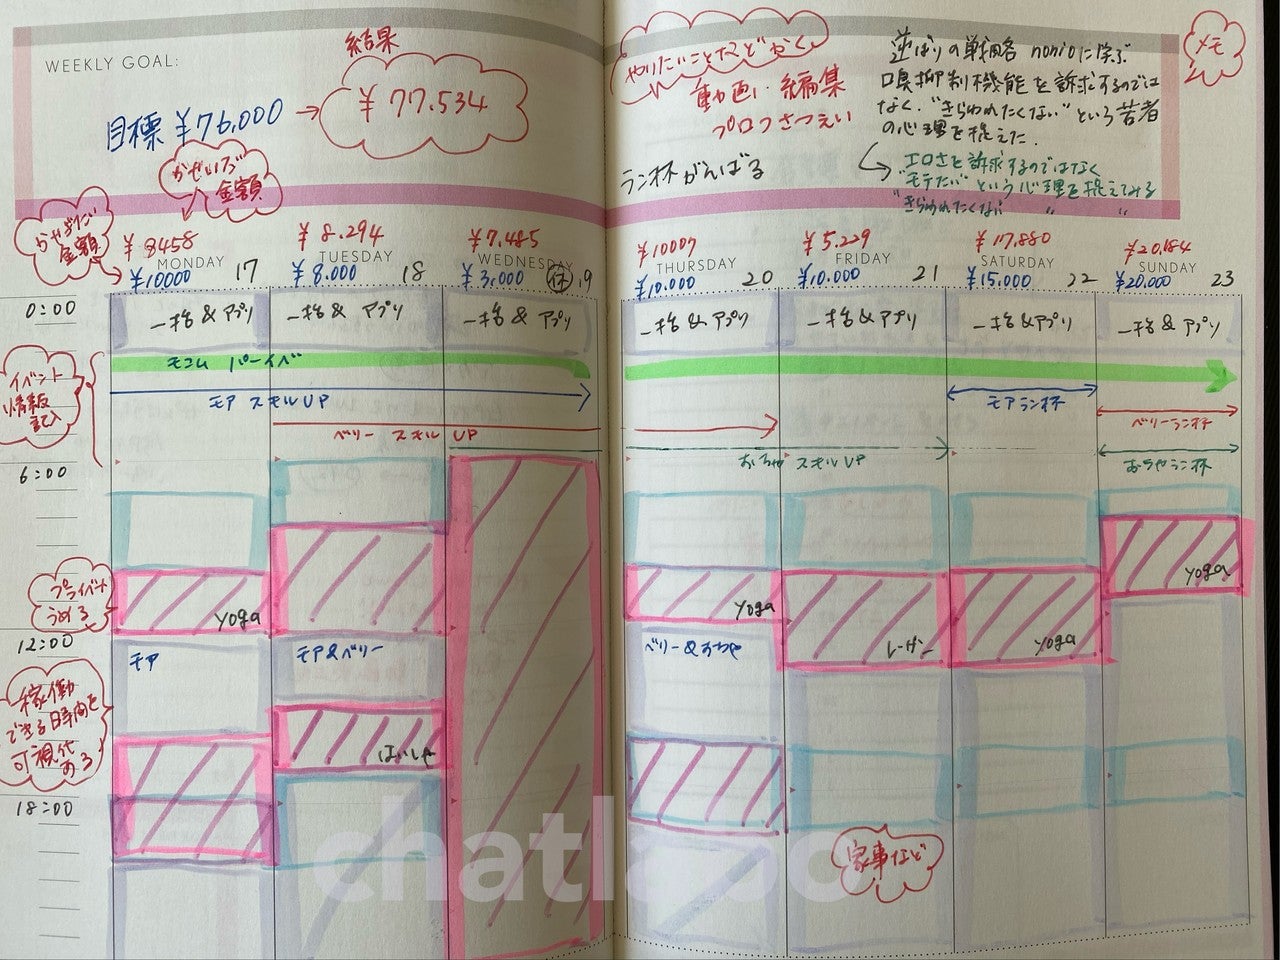 WEEKLY GOAL:
目標 ¥76,000
結果
¥77.534
かせいだ
金額
かせぎたい
金額
やりたいことなどかく
動画・編集
プロフさつえい
ラン杯がんばる
並ばりの戦略 nonioに学ぶ
口臭抑制機能を訴求するのでは
なく、"きらわれたくない"という若者
の心理を捉えた.
エロさを訴求するのではなく
"モテたい"という心理を捉えてみる
"きらわれたくない 〃 〃
メモ
¥8458
MONDAY 17
¥10000
¥8.294
TUESDAY 18
¥8.000
¥7.485
WEDNESDAY 休 19
¥3,000
¥10007
THURSDAY 20
¥10.000
¥5.229
FRIDAY 21
¥10.000
¥17,880
SATURDAY 22
¥15.000
¥20.184
SUNDAY 23
¥20.000
0:00
一括&アプリ
一括&アプリ
一括&アプリ
一括&アプリ
一括&アプリ
一括&アプリ
一括&アプリ
イベント
情報
記入
モコム パーイベ
モア スキルUP
モアラン杯
ベリー スキル UP
ベリーラン杯
おちゃ スキルUP
おちゃラン杯
6:00
プライベート
うめる
yoga
yoga
レーザー
yoga
yoga
12:00
モア
モア&ベリー
ベリー&おちゃ
稼働
できる時間を
可視化
する
はいしゃ
18:00
家事など
chatlabo